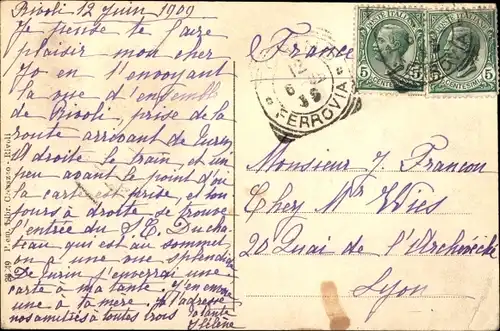 Rivoli 12 Juin 1909
Je pense te faire
plaisir mon cher
Jo en t'envoyant
la vue d'ensemble
de Rivoli, prise de la
route arrivant de Turin
à droite le train et un
peu avant le point d'où
la carte est prise, et tou
jours à droite se trouve
l'entrée du
teau qui est au sommet,
on a une vue splendide
De Turin j'enverrai une
carte à ma tante. J'en envoie
une à ta mère. Je t'adresse
nos amitiés à toutes trois
ta tante
Hélène
(France)
Monsieur J. Francon
Chez Mr Wies
20 Quai de l'Archevêché
Lyon
FERROVIA
POSTE ITALIANE
5 CENTESIMI 5
5 CENTESIMI 5